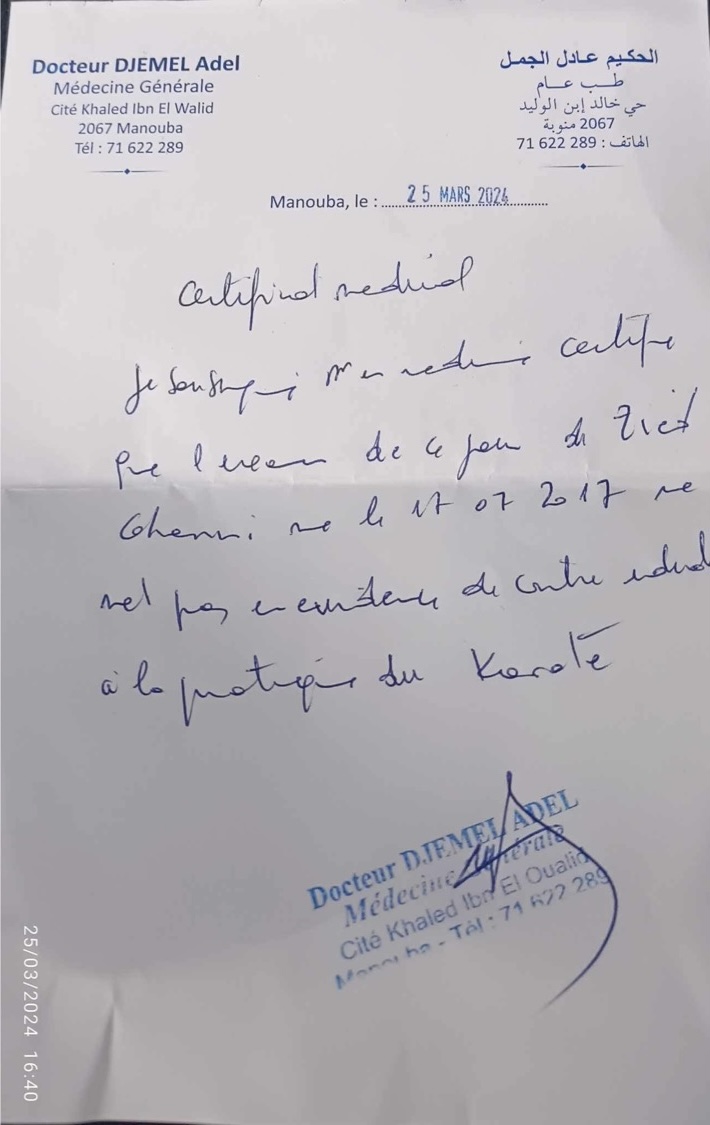 Docteur DJEMEL Adel
Médecine Générale
Cité Khaled Ibn El Walid
2067 Manouba
Tél : 71 622 289
الحكيم عادل الجمل
طب عام
حي خالد إبن الوليد
2067 منوبة
الهاتف : 71 622 289
Manouba, le : 25 MARS 2024
Certificat medical
Je soussigné en medecine certifie
que l'examen de ce jour de Zied
Ghanmi ne le 17 07 2017 ne
met pas en evidence de contre indicat
à la pratique du Karaté
Docteur DJEMEL ADEL
Médecine Générale
Cité Khaled Ibn El Oualid
Manouba - Tél : 71 622 289
25/03/2024 16:40